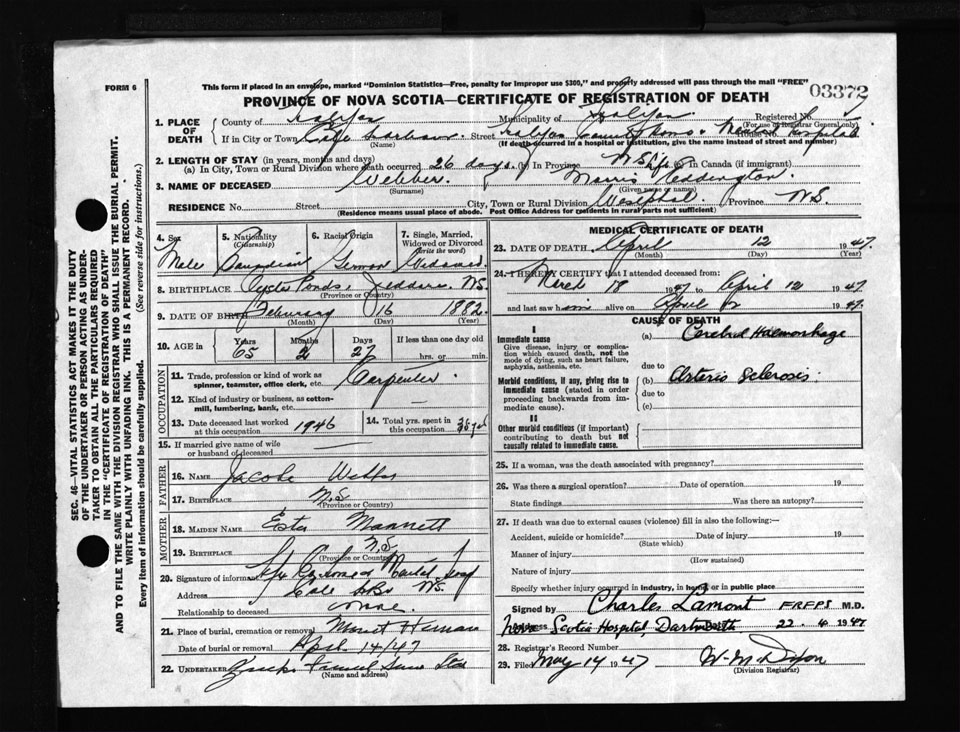 FORM 6
This form if placed in an envelope, marked "Dominion Statistics—Free, penalty for improper use $300," and properly addressed will pass through the mail "FREE"
PROVINCE OF NOVA SCOTIA—CERTIFICATE OF REGISTRATION OF DEATH
03372
1. PLACE OF DEATH
County of Halifax Municipality of Halifax Registered No.
(For use of Registrar General only)
If in City or Town Cole Harbour Street Halifax County Home & Mental Hospital House No.
(Name) (If death occurred in a hospital or institution, give the name instead of street and number)
2. LENGTH OF STAY (in years, months and days)
(a) In City, Town or Rural Division where death occurred 26 days. (b) In Province N.S. life (c) in Canada (if immigrant)
3. NAME OF DECEASED Webber. Morris Eddington.
(Surname) (Given name or names)
RESIDENCE No. Street City, Town or Rural Division Westphal Province N.S.
(Residence means usual place of abode. Post Office Address for residents in rural parts not sufficient)
4. Sex Male
5. Nationality (Citizenship) Canadian
6. Racial Origin
7. Single, Married, Widowed or Divorced (write the word) Widowed
8. BIRTHPLACE Oyster Ponds, Jeddore. N.S.
(Province or Country)
9. DATE OF BIRTH February 16 1882
(Month) (Day) (Year)
10. AGE in Years Months Days If less than one day old
65 2 27 hrs. or min.
OCCUPATION
11. Trade, profession or kind of work as spinner, teamster, office clerk, etc. Carpenter.
12. Kind of industry or business, as cotton-mill, lumbering, bank, etc.
13. Date deceased last worked at this occupation 1946
14. Total yrs. spent in this occupation
15. If married give name of wife or husband of deceased
FATHER
16. NAME Jacob Webber
17. BIRTHPLACE N.S
(Province or Country)
MOTHER
18. MAIDEN NAME Ester Mannett
19. BIRTHPLACE N.S
(Province or Country)
20. Signature of informant
Address Cole Hbr N.S.
Relationship to deceased none.
21. Place of burial, cremation or removal Mount Herman
Date of burial or removal April 14/47
22. UNDERTAKER
(Name and address)
MEDICAL CERTIFICATE OF DEATH
23. DATE OF DEATH April 12 1947.
(Month) (Day) (Year)
24. I HEREBY CERTIFY that I attended deceased from
March 18 1947 to April 12 1947.
and last saw him alive on April 12 1947.
CAUSE OF DEATH
I
Immediate cause
Give disease, injury or complication which caused death, not the mode of dying, such as heart failure, asphyxia, asthenia, etc.
(a) Cerebral Haemorrhage
due to
Morbid conditions, if any, giving rise to immediate cause (stated in order proceeding backwards from immediate cause).
(b) Arterio Sclerosis.
due to
(c)
II
Other morbid conditions (if important) contributing to death but not causally related to immediate cause.
25. If a woman, was the death associated with pregnancy?
26. Was there a surgical operation? Date of operation 19
State findings Was there an autopsy?
27. If death was due to external causes (violence) fill in also the following:—
Accident, suicide or homicide? Date of injury 19
(State which)
Manner of injury
(How sustained)
Nature of injury
Specify whether injury occurred in industry, in home, or in public place
Signed by Charles Lamont FRFPS M.D.
Address Nova Scotia Hospital Dartmouth 22. 4 1947
28. Registrar's Record Number
29. Filed May 14 1947 W. M. Dixon
(Division Registrar)
SEC. 46—VITAL STATISTICS ACT MAKES IT THE DUTY
OF THE UNDERTAKER OR PERSON ACTING AS UNDERTAKER TO OBTAIN ALL THE PARTICULARS REQUIRED
IN THE "CERTIFICATE OF REGISTRATION OF DEATH"
AND TO FILE THE SAME WITH THE DIVISION REGISTRAR WHO SHALL ISSUE THE BURIAL PERMIT.
WRITE PLAINLY WITH UNFADING INK. THIS IS A PERMANENT RECORD.
Every item of information should be carefully supplied. (See reverse side for instructions.)